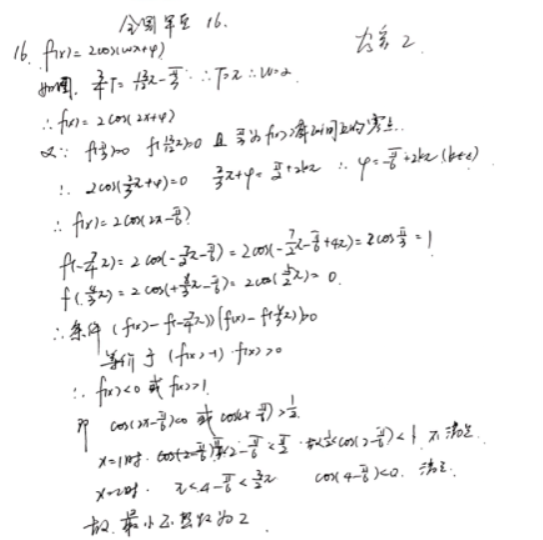 全国甲卷 16.
答案 2
16. f(x)=2cos(ωx+φ)
如图. 3/4T=13/12π-π/3 ∴T=π ∴ω=2
∴f(x)=2cos(2x+φ)
又∵ f(π/3)=0 f(13/12π)>0 且 π/3为f(x)
∴ 2cos(2/3π+φ)=0 2/3π+φ=π/2+2kπ ∴ φ=-π/6+2kπ(k∈z)
∴ f(x)=2cos(2x-π/6)
f(-7/4π)=2cos(-7/2π-π/6)=2cos(-7/2π-π/6+4π)=2cosπ/3=1
f(4/3π)=2cos(+8/3π-π/6)=2cos(5/2π)=0.
∴条件 (f(x)-f(-7/4π))(f(x)-f(4/3π))>0
等价于 (f(x)-1)·f(x)>0
∴ f(x)<0 或 f(x)>1.
即 cos(2x-π/6)<0 或 cos(2x-π/6)>1/2.
x=1时. 2-π/6<π/2 cos(2-π/6)< 不满足.
x=2时. π<4-π/6<3/2π cos(4-π/6)<0. 满足.
故.最小正整数为2.